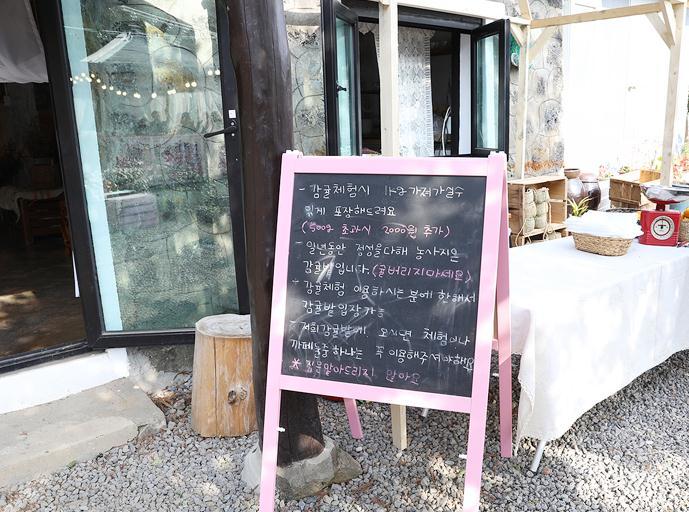 - 감귤체험시 1kg 가져가실수
있게 포장해드려요
(500g 초과시 2000원 추가)
- 일년동안 정성을다해 농사지은
감귤밭입니다. (귤버리지마세요)
- 감귤체험 이용하시는 분에 한해서
감귤밭입장가능
- 저희감귤밭에 오시면 체험이나
카페둘중하나는 꼭 이용해주셔야해요
* 짐은맡아드리지 않아요